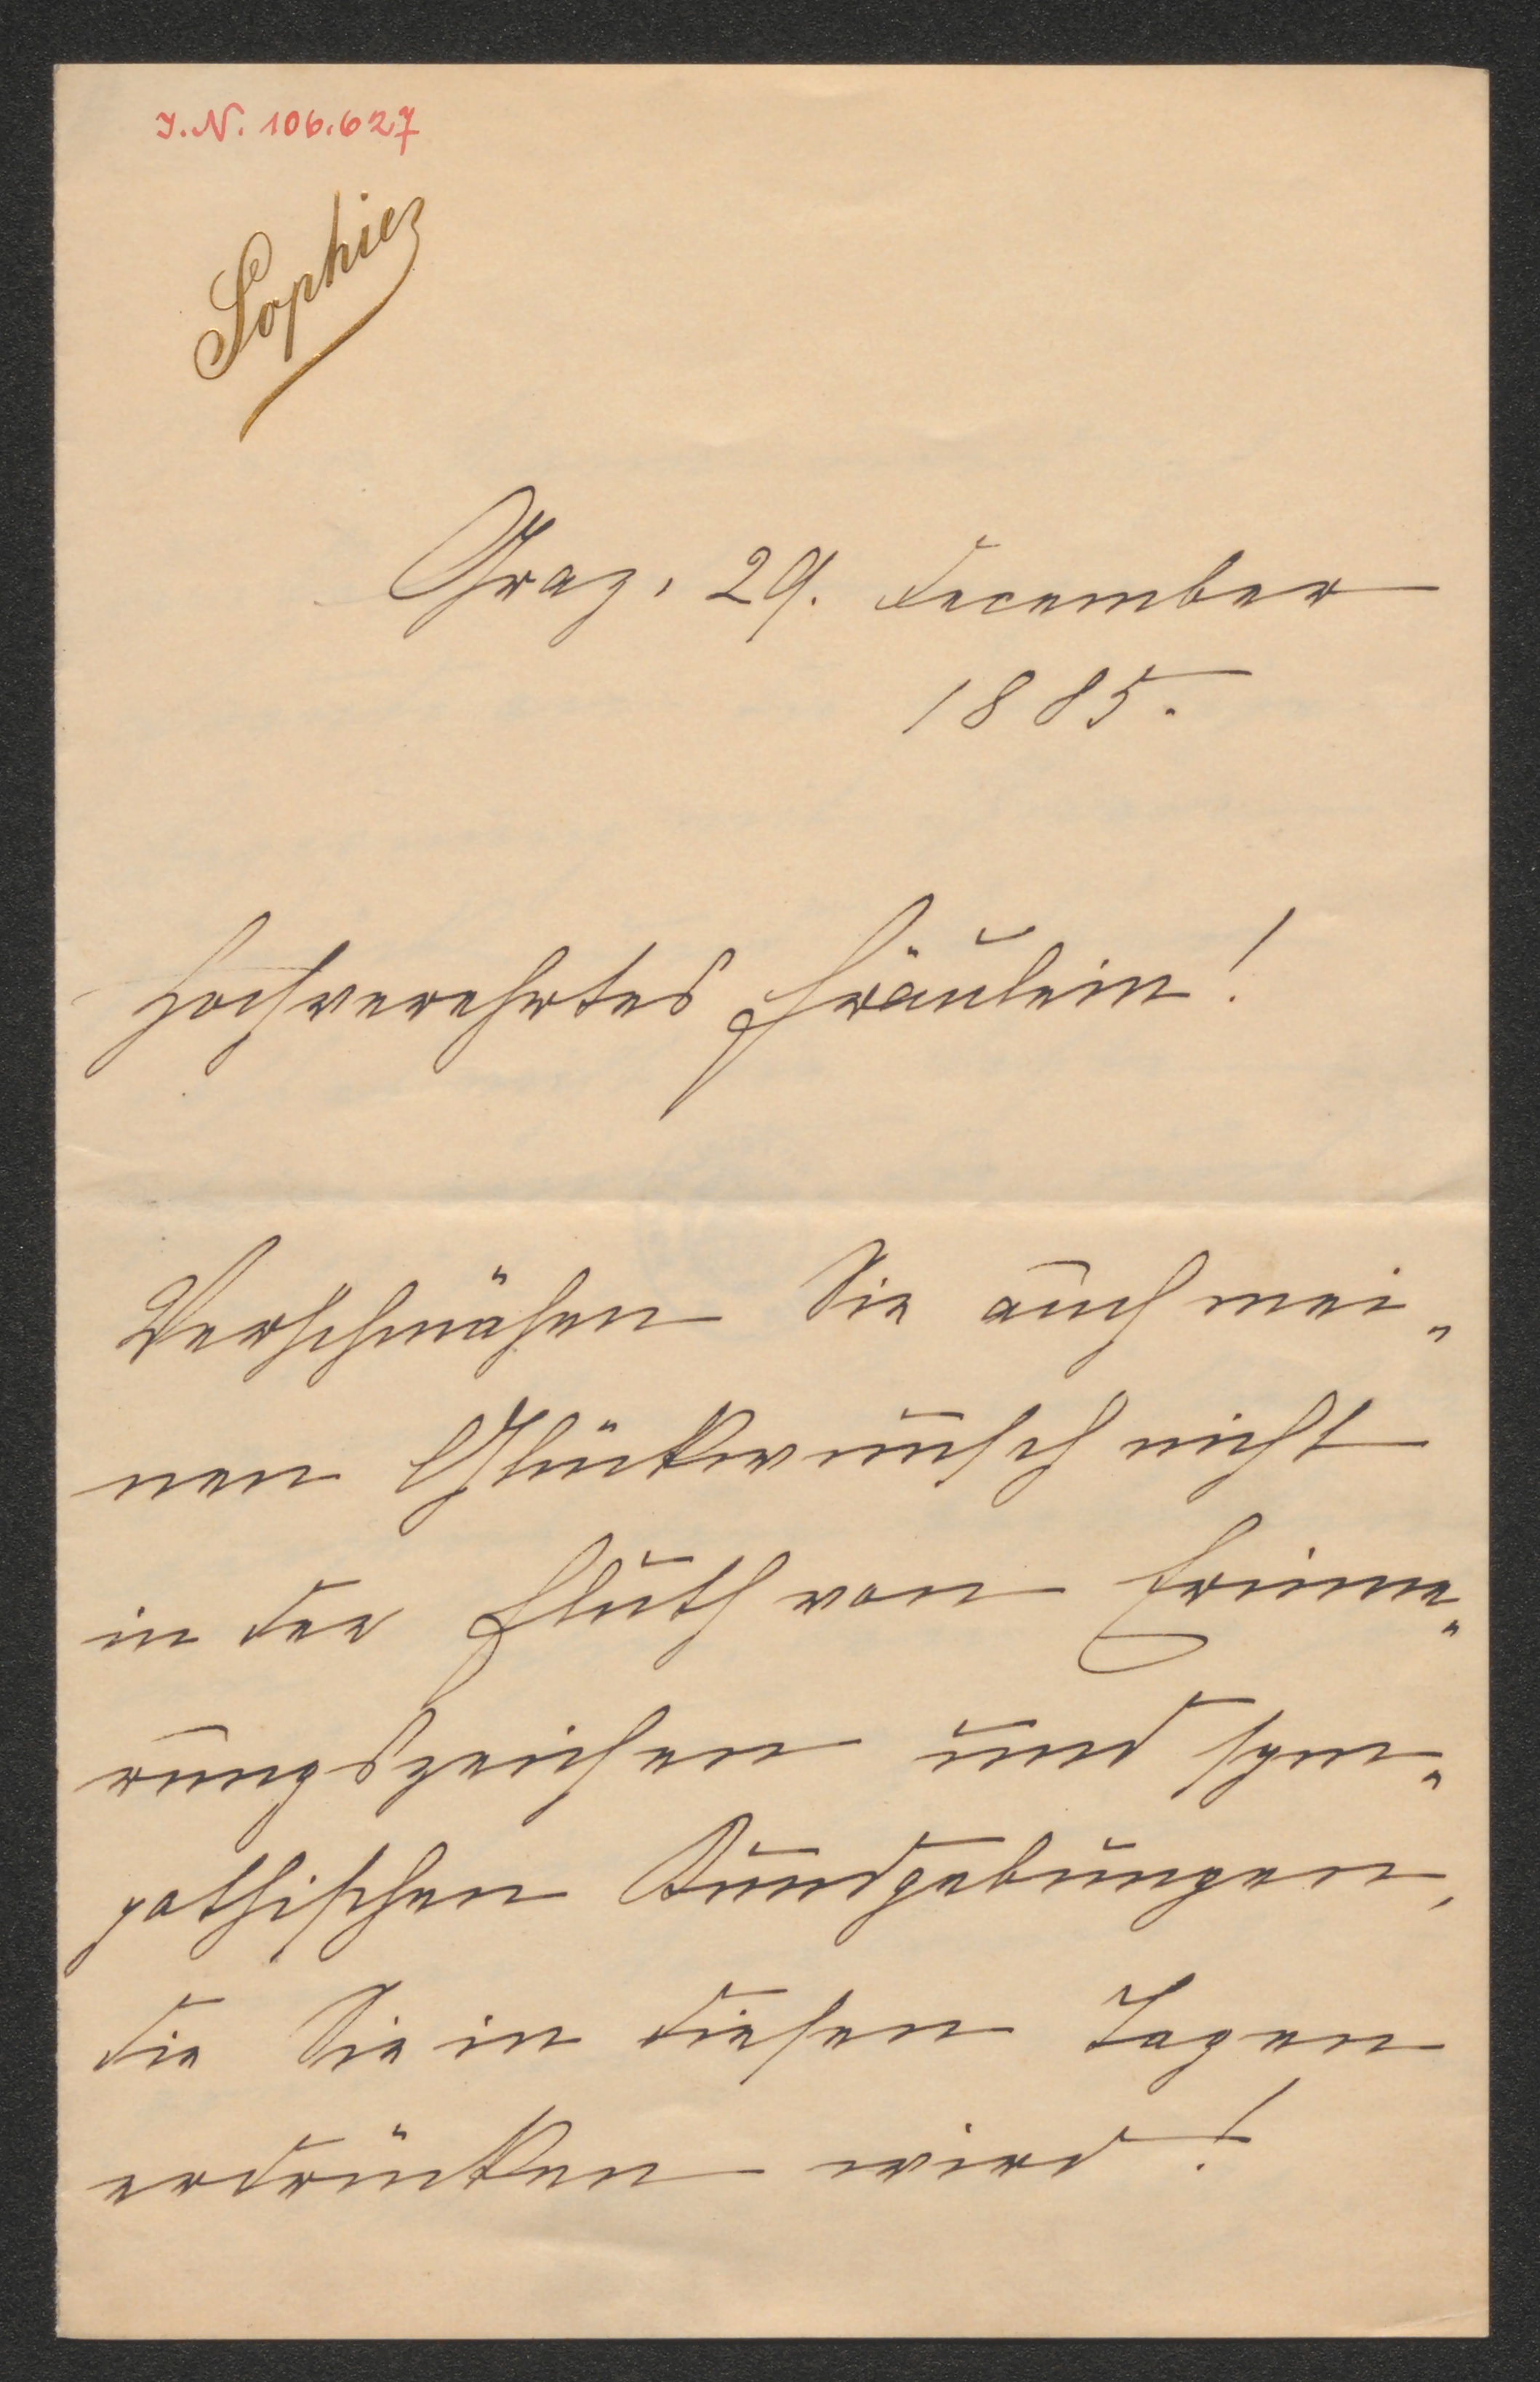 J.N. 106.627
Sophie
Graz, 29. December
1885.
Hochverehrtes Fräulein!
Verschmähen Sie auch mei„
nen Glückwunsch nicht
in der Fluth von Erinne„
rungszeichen und sym„
pathischen Kundgebungen,
die Sie in diesen Tagen
erdrücken wird!